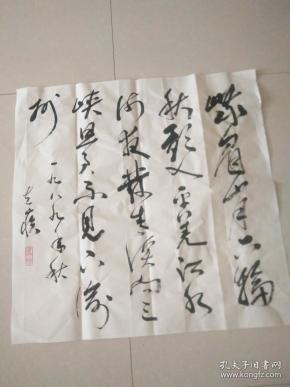 峨眉山月半輪
秋影入平羌江水
流夜发清溪向三
峡思君不见下渝
州
一九八九年秋
孔夫子旧书网
www.kongfz.com